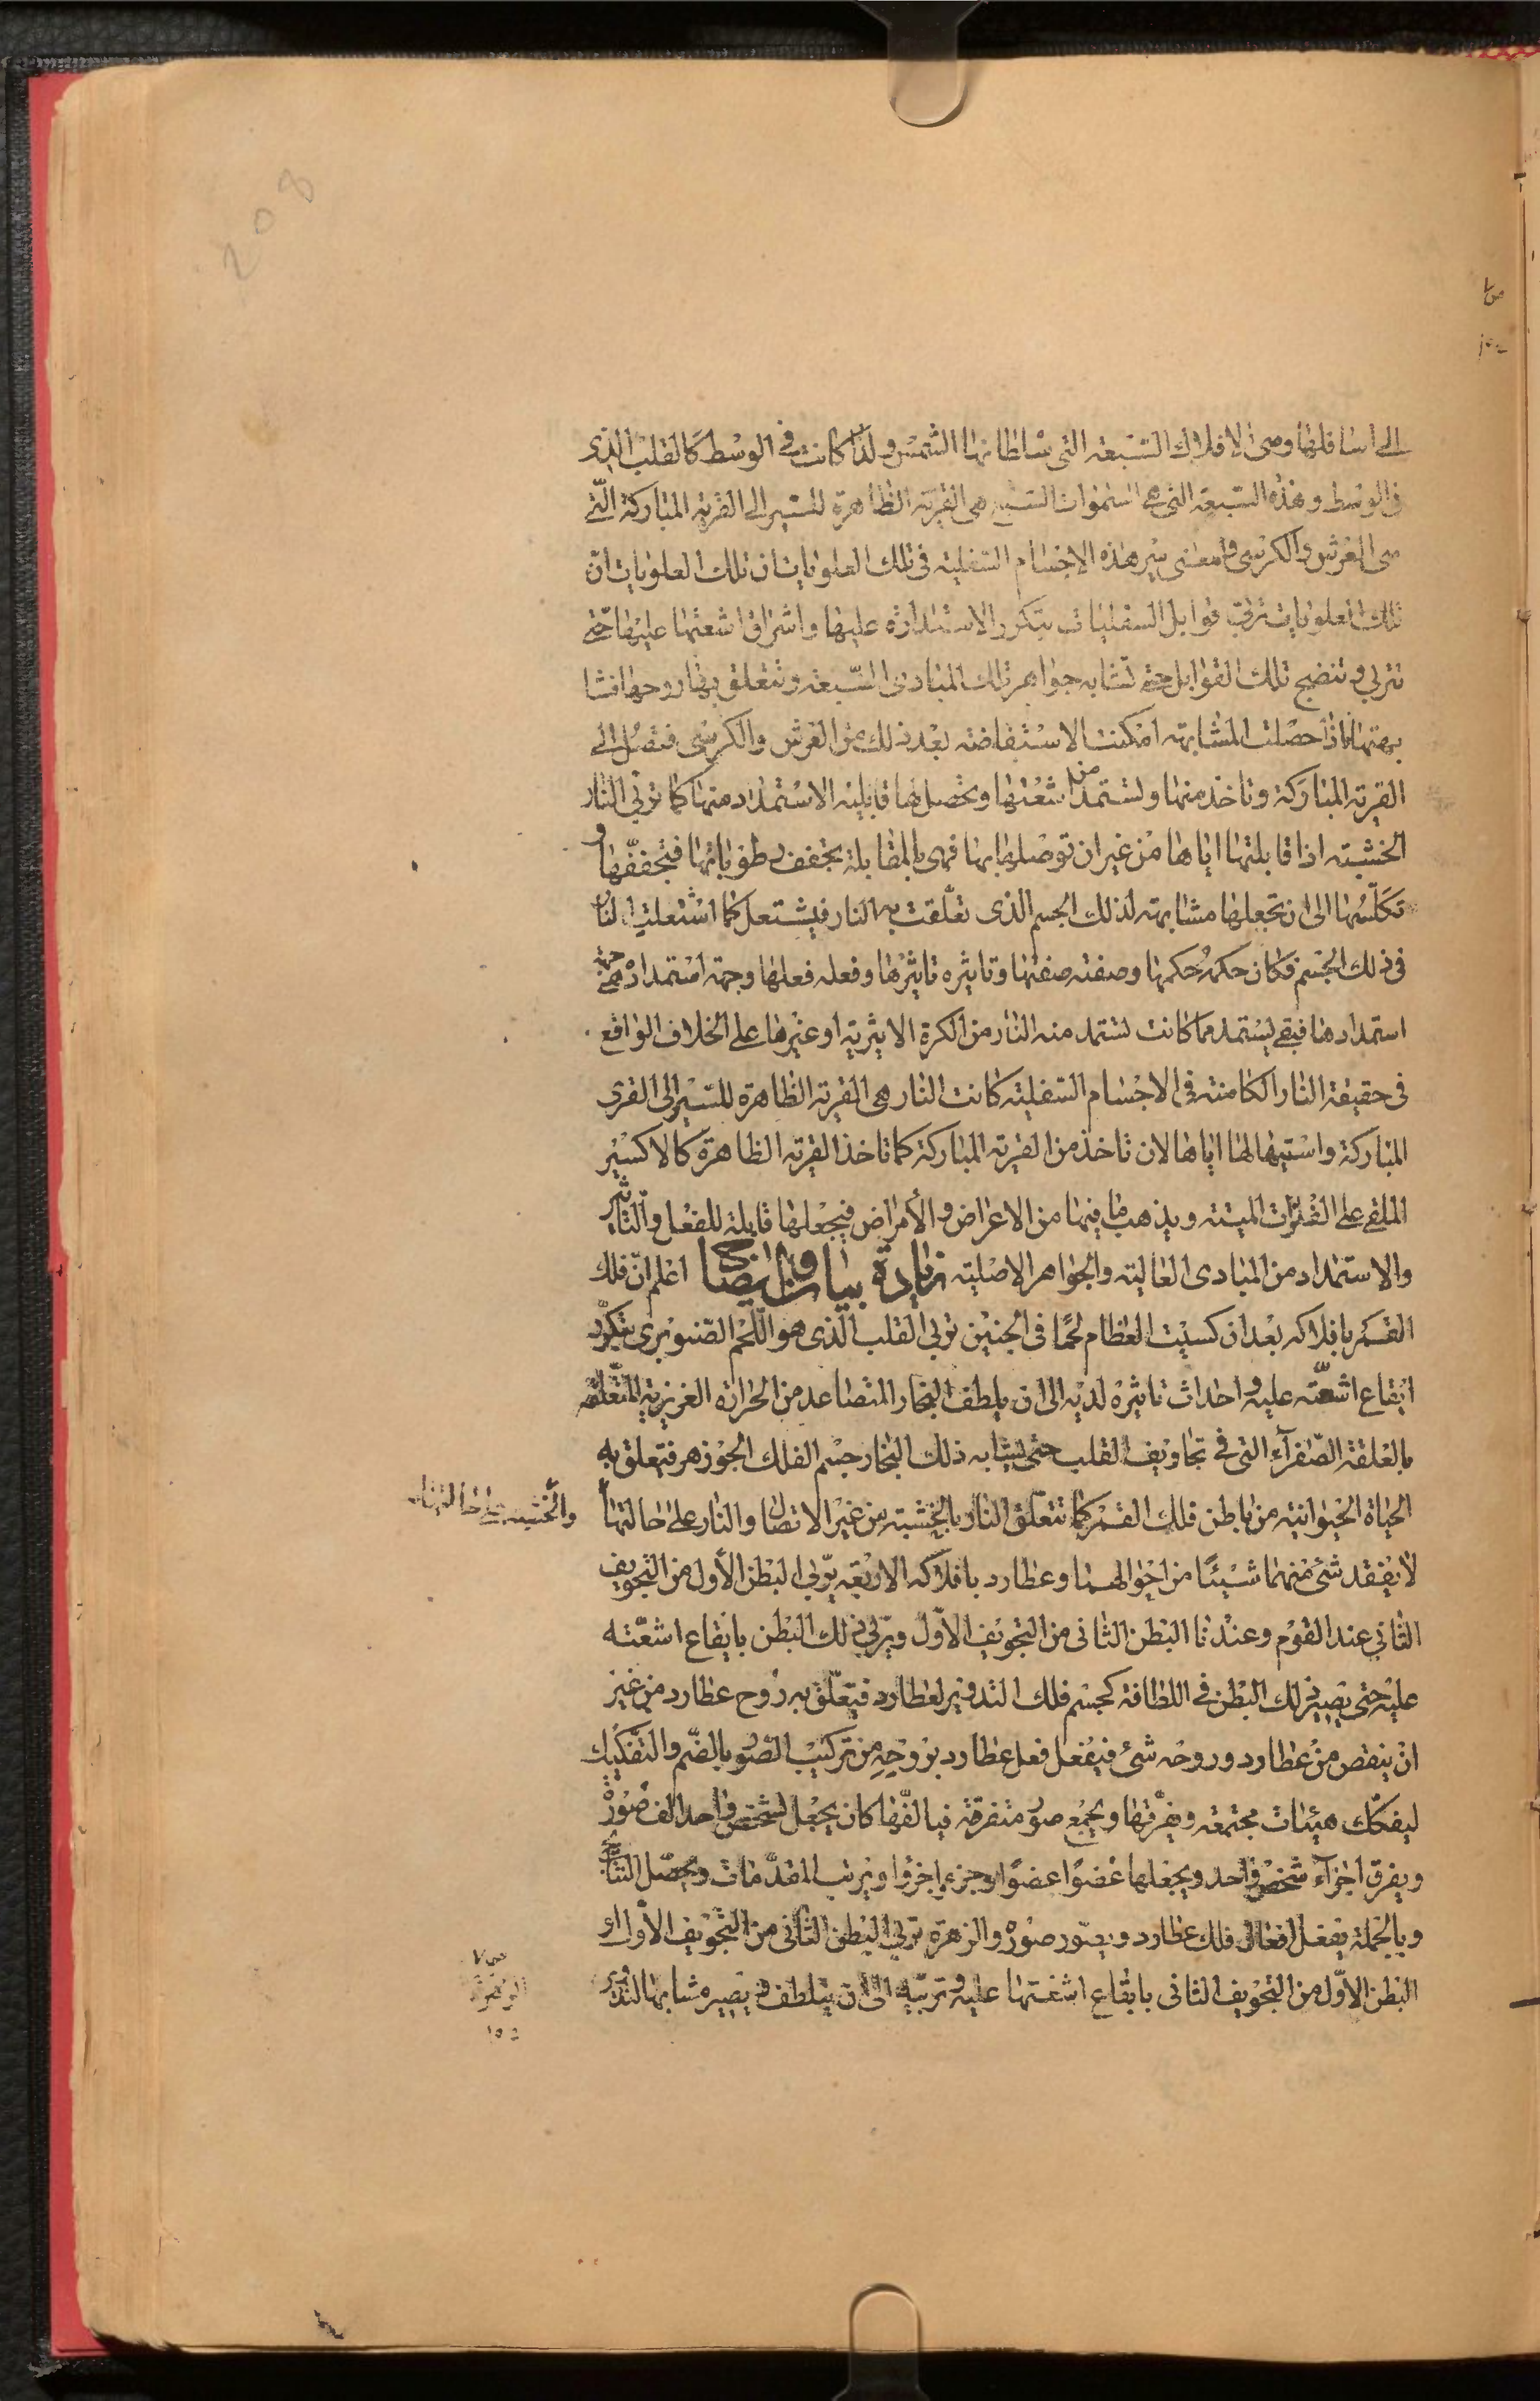 الى اسافلها وهى الافلاك السبعة التى سلطانها الشمس ولذا كانت فى الوسط كالقلب الذى
فى الوسط وهذه السبعة التى هى السموات السبع هى القرية الظاهرة للسير الى القرية المباركة التى
هى العرش والكرسى ومعنى سير هذه الاجسام السفلية فى تلك العلويات ان تلك العلويات ان
تلك العلويات تربى قوابل السفليات بتكرر الاستدارة عليها واشراق اشعتها عليها حتى
تتربى وتنضج تلك القوابل حتى تشابه جواهر تلك المبادى السبعة وتتعلق بها روحها فتشا
بهتها فاذا حصلت المشابهة امكنت الاستفاضة بعد ذلك من العرش والكرسى فتصل الى
القرية المباركة وتاخذ منها وتستمد من اشعتها وتحصل لها قابلية الاستمداد منها كما تربى النار
الخشبة اذا قابلتها اياها من غير ان توصلها بها فهى بالمقابلة تجفف رطوباتها فتجففها و
تكلسها الى ان تجعلها مشابهة لذلك الجسم الذى تعلقت به النار فيشتعل كما اشتعلت النار
فى ذلك الجسم فكان حكمه حكمها وصفته صفتها وتاثيره تاثيرها وفعله فعلها وجهة استمداده جهة
استمدادها فبقى يستمد مما كانت تستمد منه النار من الكرة الاثيرية او غيرها على الخلاف الواقع
فى حقيقة النار الكامنة فى الاجسام السفلية كانت النار هى القرية الظاهرة للسير الى القرى
المباركة واستيهالها اياها لان تاخذ من القرية المباركة كما تاخذ القرية الظاهرة كالاكسير
الملقى على الفلزات الميتة ويذهب ما فيها من الاعراض والأمراض فيجعلها قابلة للفعل والتاثير
والاستمداد من المبادى العالية والجواهر الاصلية زيادة بيان وايضاح اعلم ان فلك
القمر بافلاكه بعد ان كسيت العظام لحمًا فى الجنين تربى القلب الذى هو اللحم الصنوبرى بتكرر
ايقاع اشعته عليه واحداث تاثيره لديه الى ان يلطف البخار المتصاعد من الحرارة الغريزية المتعلقة
بالعلقة الصفرآء التى فى تجاويف القلب حتى يشابه ذلك البخار جسم الفلك الجوزهر فتعلق به
الحياة الحيوانية من باطن فلك القمر كما تتعلق النار بالخشبة من غير الاتصال والنار على حالتها
والخشبة على حالتها
لا يفقد شئ منهما شيئًا من احوالهما وعطارد بافلاكه الاربعة يربى البطن الأول من التجويف
الثانى عند القوم وعندنا البطن الثانى من التجويف الاول ويربى ذلك البطن بايقاع اشعته
عليه حتى يصير ذلك البطن فى اللطافة كجسم فلك التدوير لعطارد فيتعلق به روح عطارد من غير
ان ينقص من عطارد وروحه شئ فيفعل فعل عطارد بروحه من تركيب الصور بالضم والتفكيك
ليفكك هيئات مجتمعة ويفرقها ويجمع صور متفرقة فيالفها كان يجعل لشخص واحد الف صورة
ويفرق اجزآء شخص واحد ويجعلها عضوًا عضوًا وجزء اجزؤا ويرتب المقدمات ويحصل النتايج
وبالجملة يفعل افعال فلك عطارد ويصور صوره والزهرة تربى البطن الثانى من التجويف الاول او
البطن الاول من التجويف الثانى بايقاع اشعتها عليه وتربيه الى ان يتلطف ويصير مشابها لتدوير